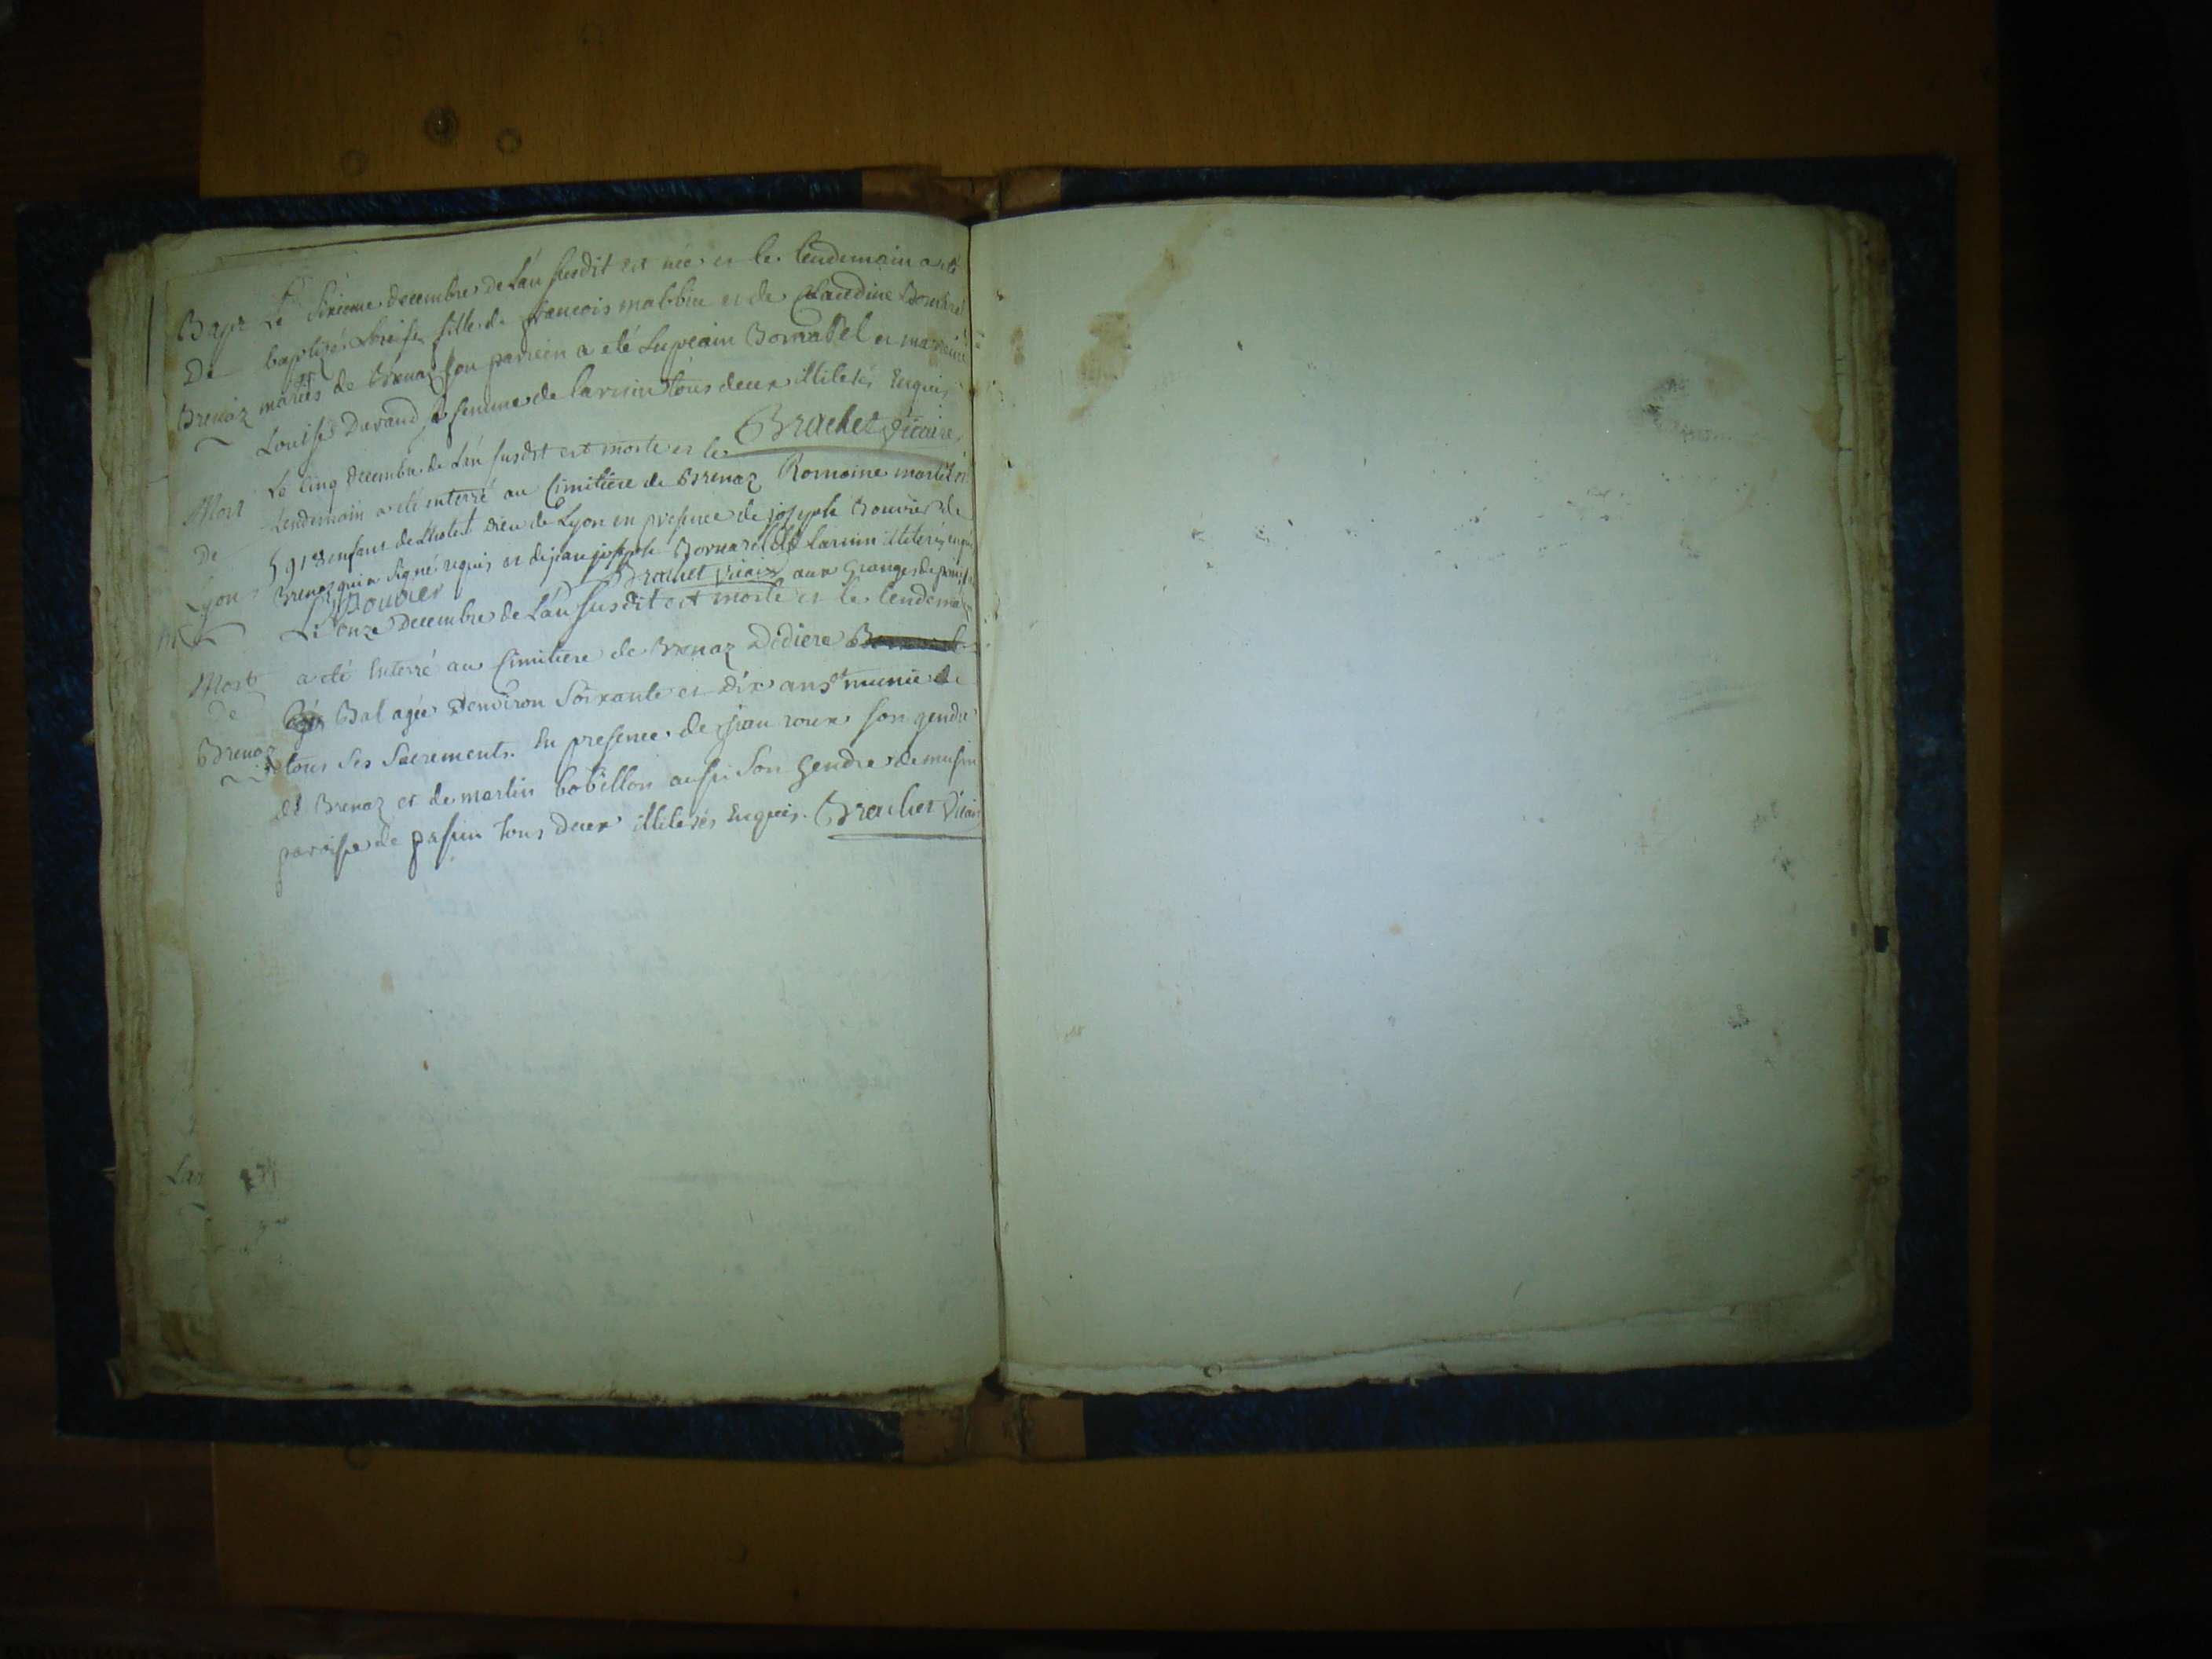 Bapt Le Sixieme decembre de L'an susdit est née et le lendemain a eté
De baptizé Louise fille de francois mabbin et de Claudine
Brenaz mariés de Brenaz son parrein a eté Cuprain Bornarel et marreine
Louise Durand, femme de larvin tous deux illiterés Enquis
Brachet Vicaire
Mort Le Cinq decembre de L'an susdit est morte et le
De lendemain a eté enterré au Cimitiere de Brenaz Romaine martel n:
Lyon 5918 enfant de L'hotel Dieu de Lyon en presence de joseph Bouvier de
Brenaz qui a signé requis et de jean joseph Bornarel de larvin illiteré enquis
J Bouvier Brachet Vicaire aux Granges de
Le onze Decembre de L'an susdit est morte et le lendemain
Mort a eté Enterré au Cimitiere de Brenaz Didiere
De Bal agée d'environ Soixante et Dix ans et munie de
Brenaz tous Ses Sacrements. En presence de jean roux son gendre
de Brenaz et de martin bobillon aussi Son gendre de musin
paroisse de passin tous Deux illiterés Enquis. Brachet Vicair
Lar